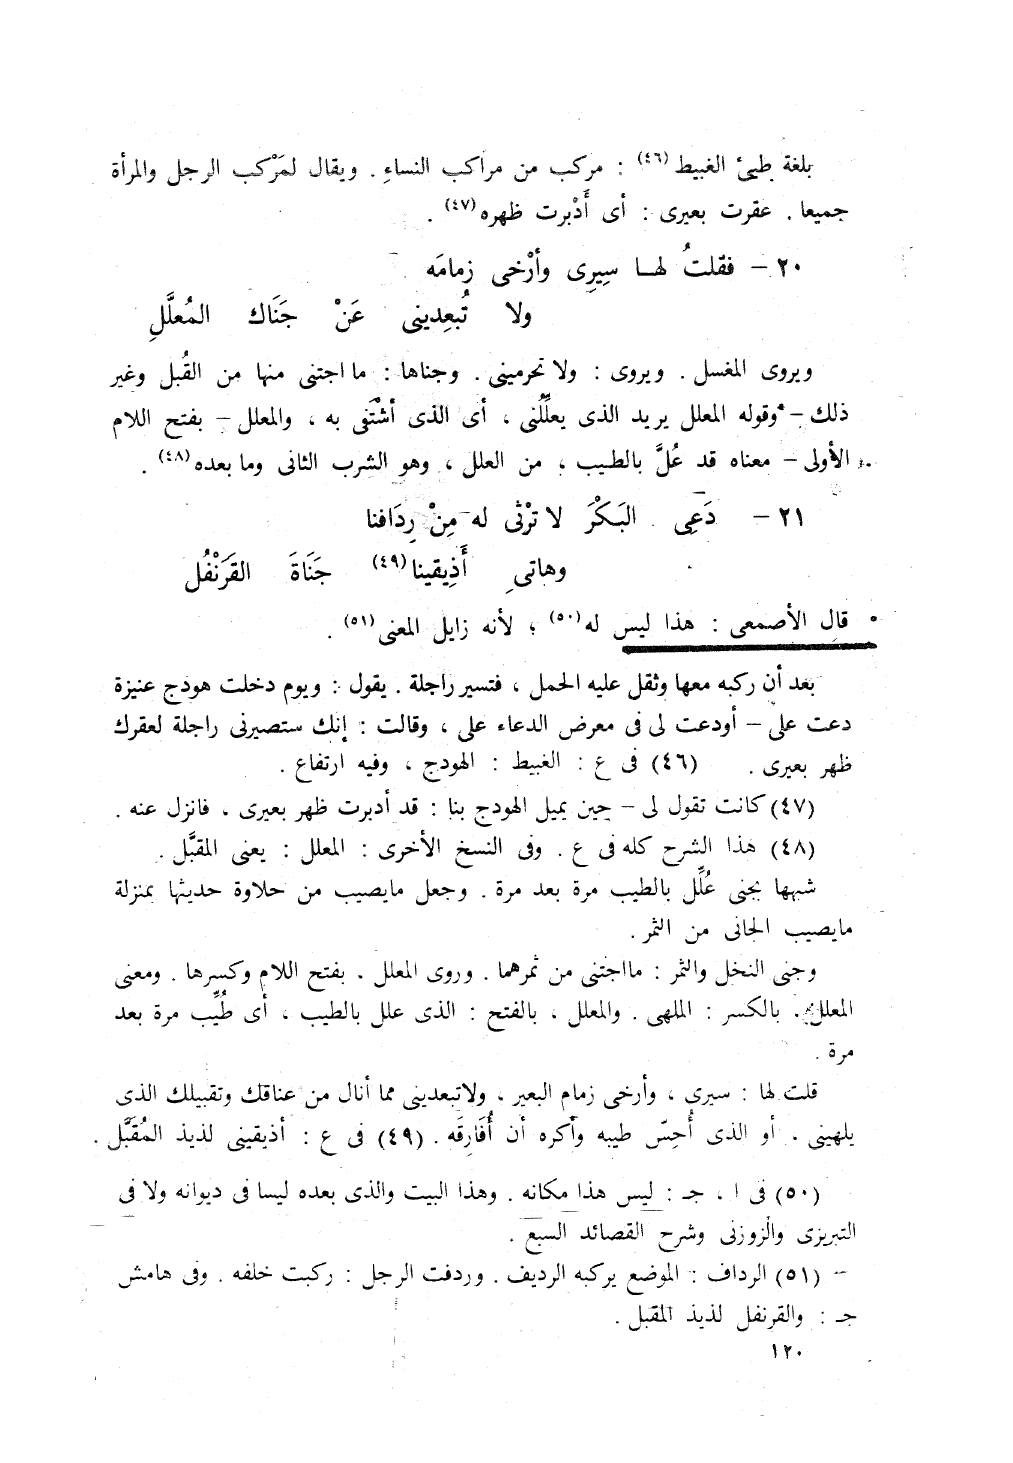 بلغة طيئ الغبيط (٤٦) : مركب من مراكب النساءِ . ويقال لمَرْكب الرجل والمرأة
جميعا . عقرت بعيرى : أى أَدْبرت ظهره (٤٧) .
٢٠ – فقلتُ لهـا سِيرِى وأرْخى زِمامَه
ولا تُبعِدينى عَنْ جَنَاك المُعلَّلِ
ويروى المغسل . ويروى : ولا تحرمينى . وجناها : ما اجتنى منها من القُبل وغير
ذلك – وقوله المعلل يريد الذى يعلِّلُنى ، أى الذى أشْتَفى به ، والمعلل – بفتح اللام
الأولى – معناه قد عُلَّ بالطيب ، من العلل ، وهو الشرب الثانى وما بعده (٤٨) .
٢١ – دَعِى البَكْرَ لا ترْثى له مِنْ رِدَافنا
وهاتىِ أَذِيقينا (٤٩) جَنَاةَ القَرَنْفُل
قال الأصمعى : هذا ليس له (٥٠) ؛ لأنه زايل المعنى (٥١) .
بعد أن ركبه معها وثقل عليه الحمل ، فتسير راجلة . يقول : ويوم دخلت هودج عنيزة
دعت على – أودعت لى فى معرض الدعاء على ، وقالت : إنك ستصيرنى راجلة لعقرك
ظهر بعيرى . (٤٦) فى ع : الغبيط : الهودج ، وفيه ارتفاع .
(٤٧) كانت تقول لى – حين يميل الهودج بنا : قد أدبرت ظهر بعيرى ، فانزل عنه .
(٤٨) هذا الشرح كله فى ع . وفى النسخ الأخرى : المعلل : يعنى المقبَّل .
شبهها بجنى عُلِّل بالطيب مرة بعد مرة . وجعل مايصيب من حلاوة حديثها بمنزلة
مايصيب الجانى من الثمر .
وجنى النخل والثمر : مااجتنى من ثمرهما . وروى المعلل . بفتح اللام وكسرها . ومعنى
المعلل . بالكسر : الملهى . والمعلل ، بالفتح : الذى علل بالطيب ، أى طُيِّب مرة بعد
مرة .
قلت لها : سيرى ، وأرخى زمام البعير ، ولاتبعدينى مما أنال من عناقك وتقبيلك الذى
يلهينى . أو الذى أُحِسّ طيبه وأكره أن أُفَارِقَه . (٤٩) فى ع : أذيقينى لذيذ المُقبَّل .
(٥٠) فى ا ، جـ : ليس هذا مكانه . وهذا البيت والذى بعده ليسا فى ديوانه ولا فى
التبريزى والزوزنى وشرح القصائد السبع .
– (٥١) الرداف : الموضع يركبه الرديف . وردفت الرجل : ركبت خلفه . وفى هامش
جـ : والقرنفل لذيذ المقبل .
١٢٠